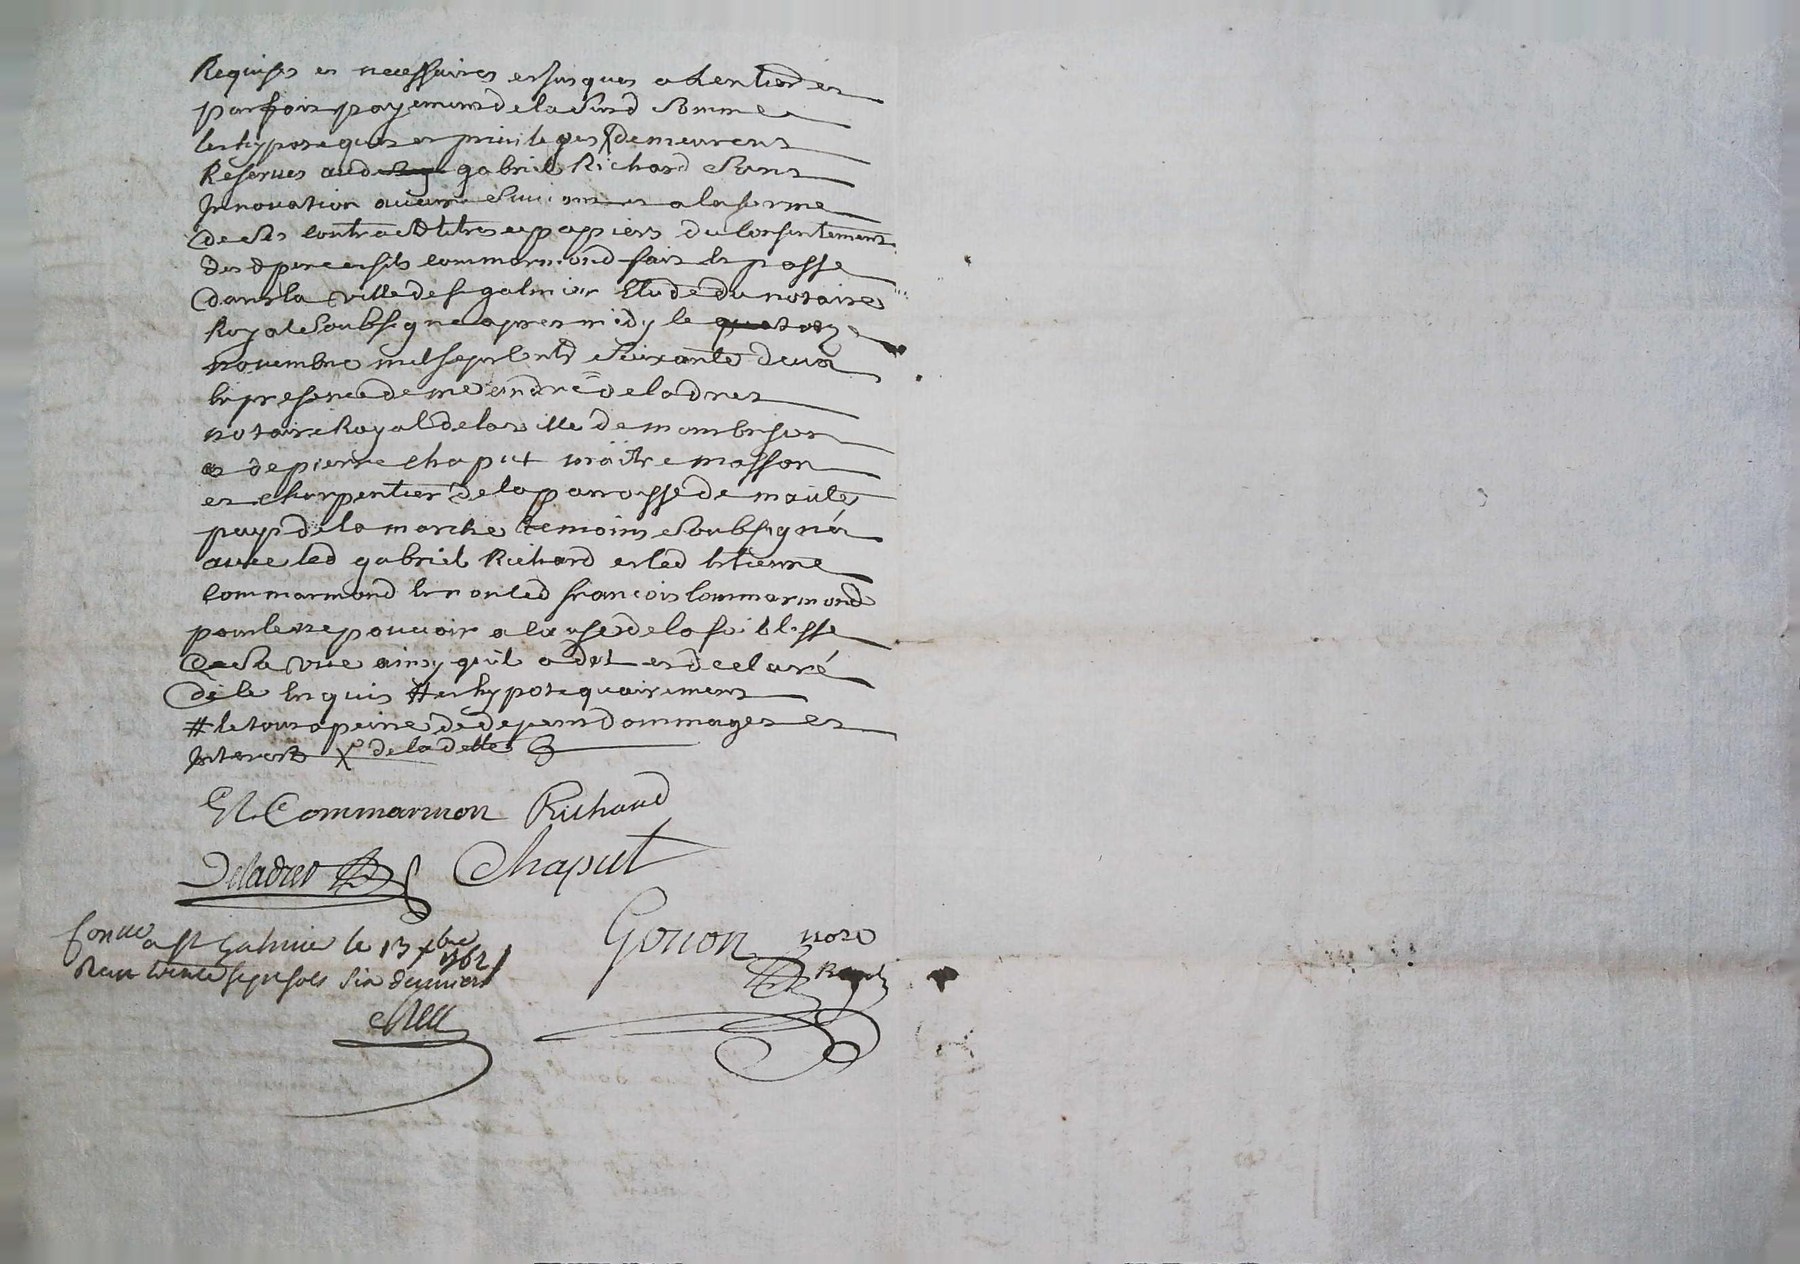 Requises et necessaires et jusques a lentier et
parfait payement de la susd somme
les hypoteques et privileges X demeurent
Reservés aud gabriel Richard sans
Innovation aucune suivant et a la forme
de ses contracts titres et papiers du consentement
des d pere et fils commarmond fait et passé
dans la ville de st galmier Etude du notaire
Royal soubsigné apres midy le quatorze
novembre mil sept cent soixante deux
En presence de me andré deladret
notaire Royal de la ville de montbrison
et de pierre chaput maitre masson
et charpentier de la parroisse de
pays de la marche temoins soubsignés
avec led gabriel Richard et led Etienne
Commarmond Et non led françois Commarmond
pour ne pouvoir a cause de la foiblesse
de sa vue ainsy quil a dit et declaré
de ce Enquis # et hypotequairement
# le tout a peine de depens dommages et
Interets X de la dette
Et Commarmon Richard
Deladret Chaput
Conlle a St Galmier le 13 xbre 1762
Receu trente sept sols six deniers
Gonon not
Royal